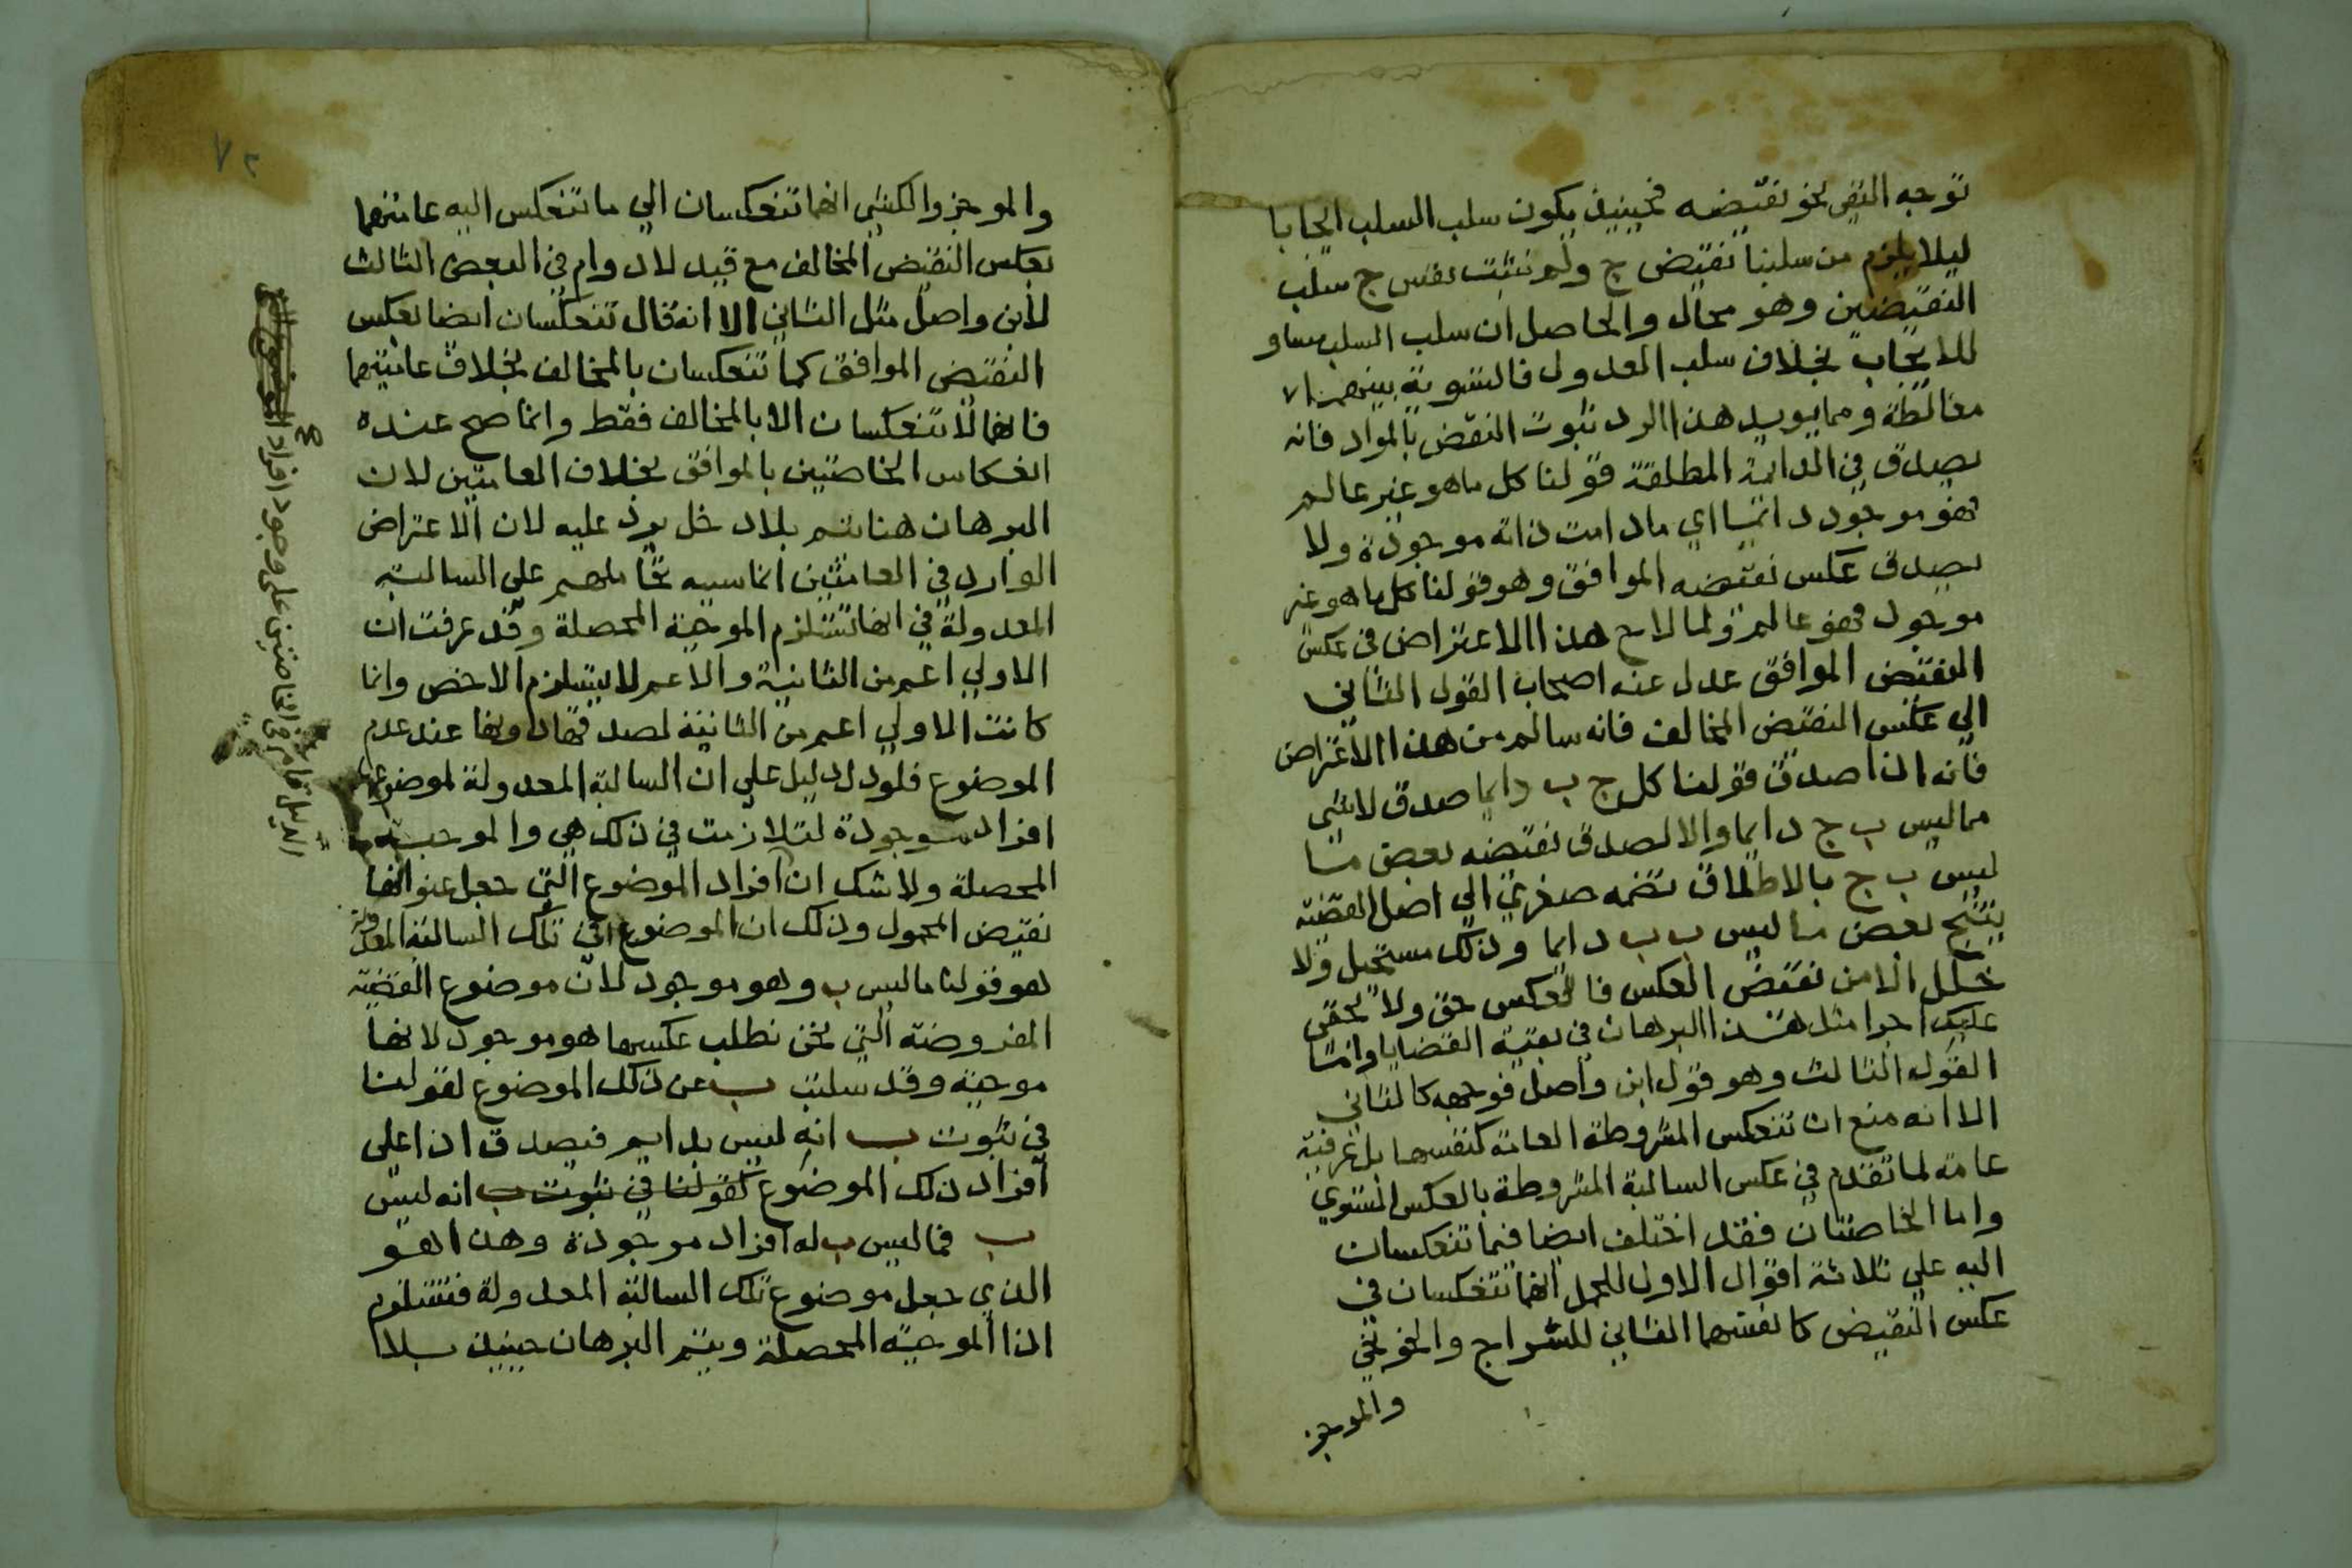 توجه النفي نحو نقيضه فحينيذ يكون سلب السلب ايجابا
ليلا يلزم من سلبنا نقيض ج ولم نثبت نفس ج سلب
النقيضين وهو محال والحاصل ان سلب السلب مساو
للايجاب بخلاف سلب العدول فالتسوية بينهما
مغالطة ومما يويد هذا الرد ثبوت النقض بالمواد فانه
يصدق في الدايمة المطلقة قولنا كل ما هو غير عالم
فهو موجود دايما اي ما دامت ذاته موجودة ولا
يصدق عكس نقيضه الموافق وهو قولنا كل ما هو غير
موجود فهو عالم ولما لاح هذا الاعتراض في عكس
النقيض الموافق عدل عنه اصحاب القول الثاني
الي عكس النقيض المخالف فانه سالم من هذا الاعتراض
فانه اذا صدق قولنا كل ج ب دايما صدق لا شي
مما ليس ب ج دايما والا لصدق نقيضه بعض ما
ليس ب ج بالاطلاق نضمه صغري الي اصل القضية
ينتج بعض ما ليس ب ب دايما وذلك مستحيل ولا
خلل الا من نقيض العكس فالعكس حق ولا يخفي
عليك اجرا مثل هذا البرهان في بقية القضايا واما
القول الثالث وهو قول ابن واصل فوجهه كالثاني
الا انه منع ان تنعكس المشروطة العامة كنفسها بل عرفية
عامة لما تقدم في عكس السالبة المشروطة بالعكس المستوي
واما الخاصتان فقد اختلف ايضا فيما تنعكسان
اليه علي ثلاثة اقوال الاول للجمل انهما تنعكسان في
عكس النقيض كانفسهما الثاني للسراج والخونجي
والموجز
٧٢
والموجز والكشي انهما تنعكسان الي ما تنعكس اليه عامتهما
بعكس النقيض المخالف مع قيد لا دوام في البعض الثالث
لابن واصل مثل الثاني الا انه قال تنعكسان ايضا بعكس
النقيض الموافق كما تنعكسان بالمخالف بخلاف عامتيهما
فانهما لا تنعكسان الا بالمخالف فقط وانما صح عنده
انعكاس الخاصتين بالموافق بخلاف العامتين لان
البرهان هنا يتم بلا دخل يرد عليه لان الاعتراض
الوارد في العامتين انما سببه تحاملهم علي السالبة
المعدولة في انها تستلزم الموجبة المحصلة وقد عرفت ان
الاولي اعم من الثانية والاعم لا يستلزم الاخص وانما
كانت الاولي اعم من الثانية لصدقها دونها عند عدم
الموضوع فلو دل دليل علي ان السالبة المعدولة لموضوعها
افراد موجودة لتلازمت في ذلك هي والموجبة
المحصلة ولا شك ان افراد الموضوع التي جعل عنوانها
نقيض المحمول وذلك ان الموضوع في تلك السالبة المعدولة
هو قولنا ما ليس ب وهو موجود لان موضوع القضية
المفروضة التي نحن نطلب عكسها هو موجود لانها
موجبة وقد سلبت ب عن ذلك الموضوع لقولنا
في ثبوت ب انه ليس بدايم فيصدق اذا علي
افراد ذلك الموضوع لقولنا في ثبوت ب انه ليس
ب فما ليس ب له افراد موجودة وهذا هو
الذي جعل موضوع تلك السالبة المعدولة فتستلزم
اذا الموجبة المحصلة ويتم البرهان حينيذ بلا
الدليل قام في الخاصتين على وجود افراد